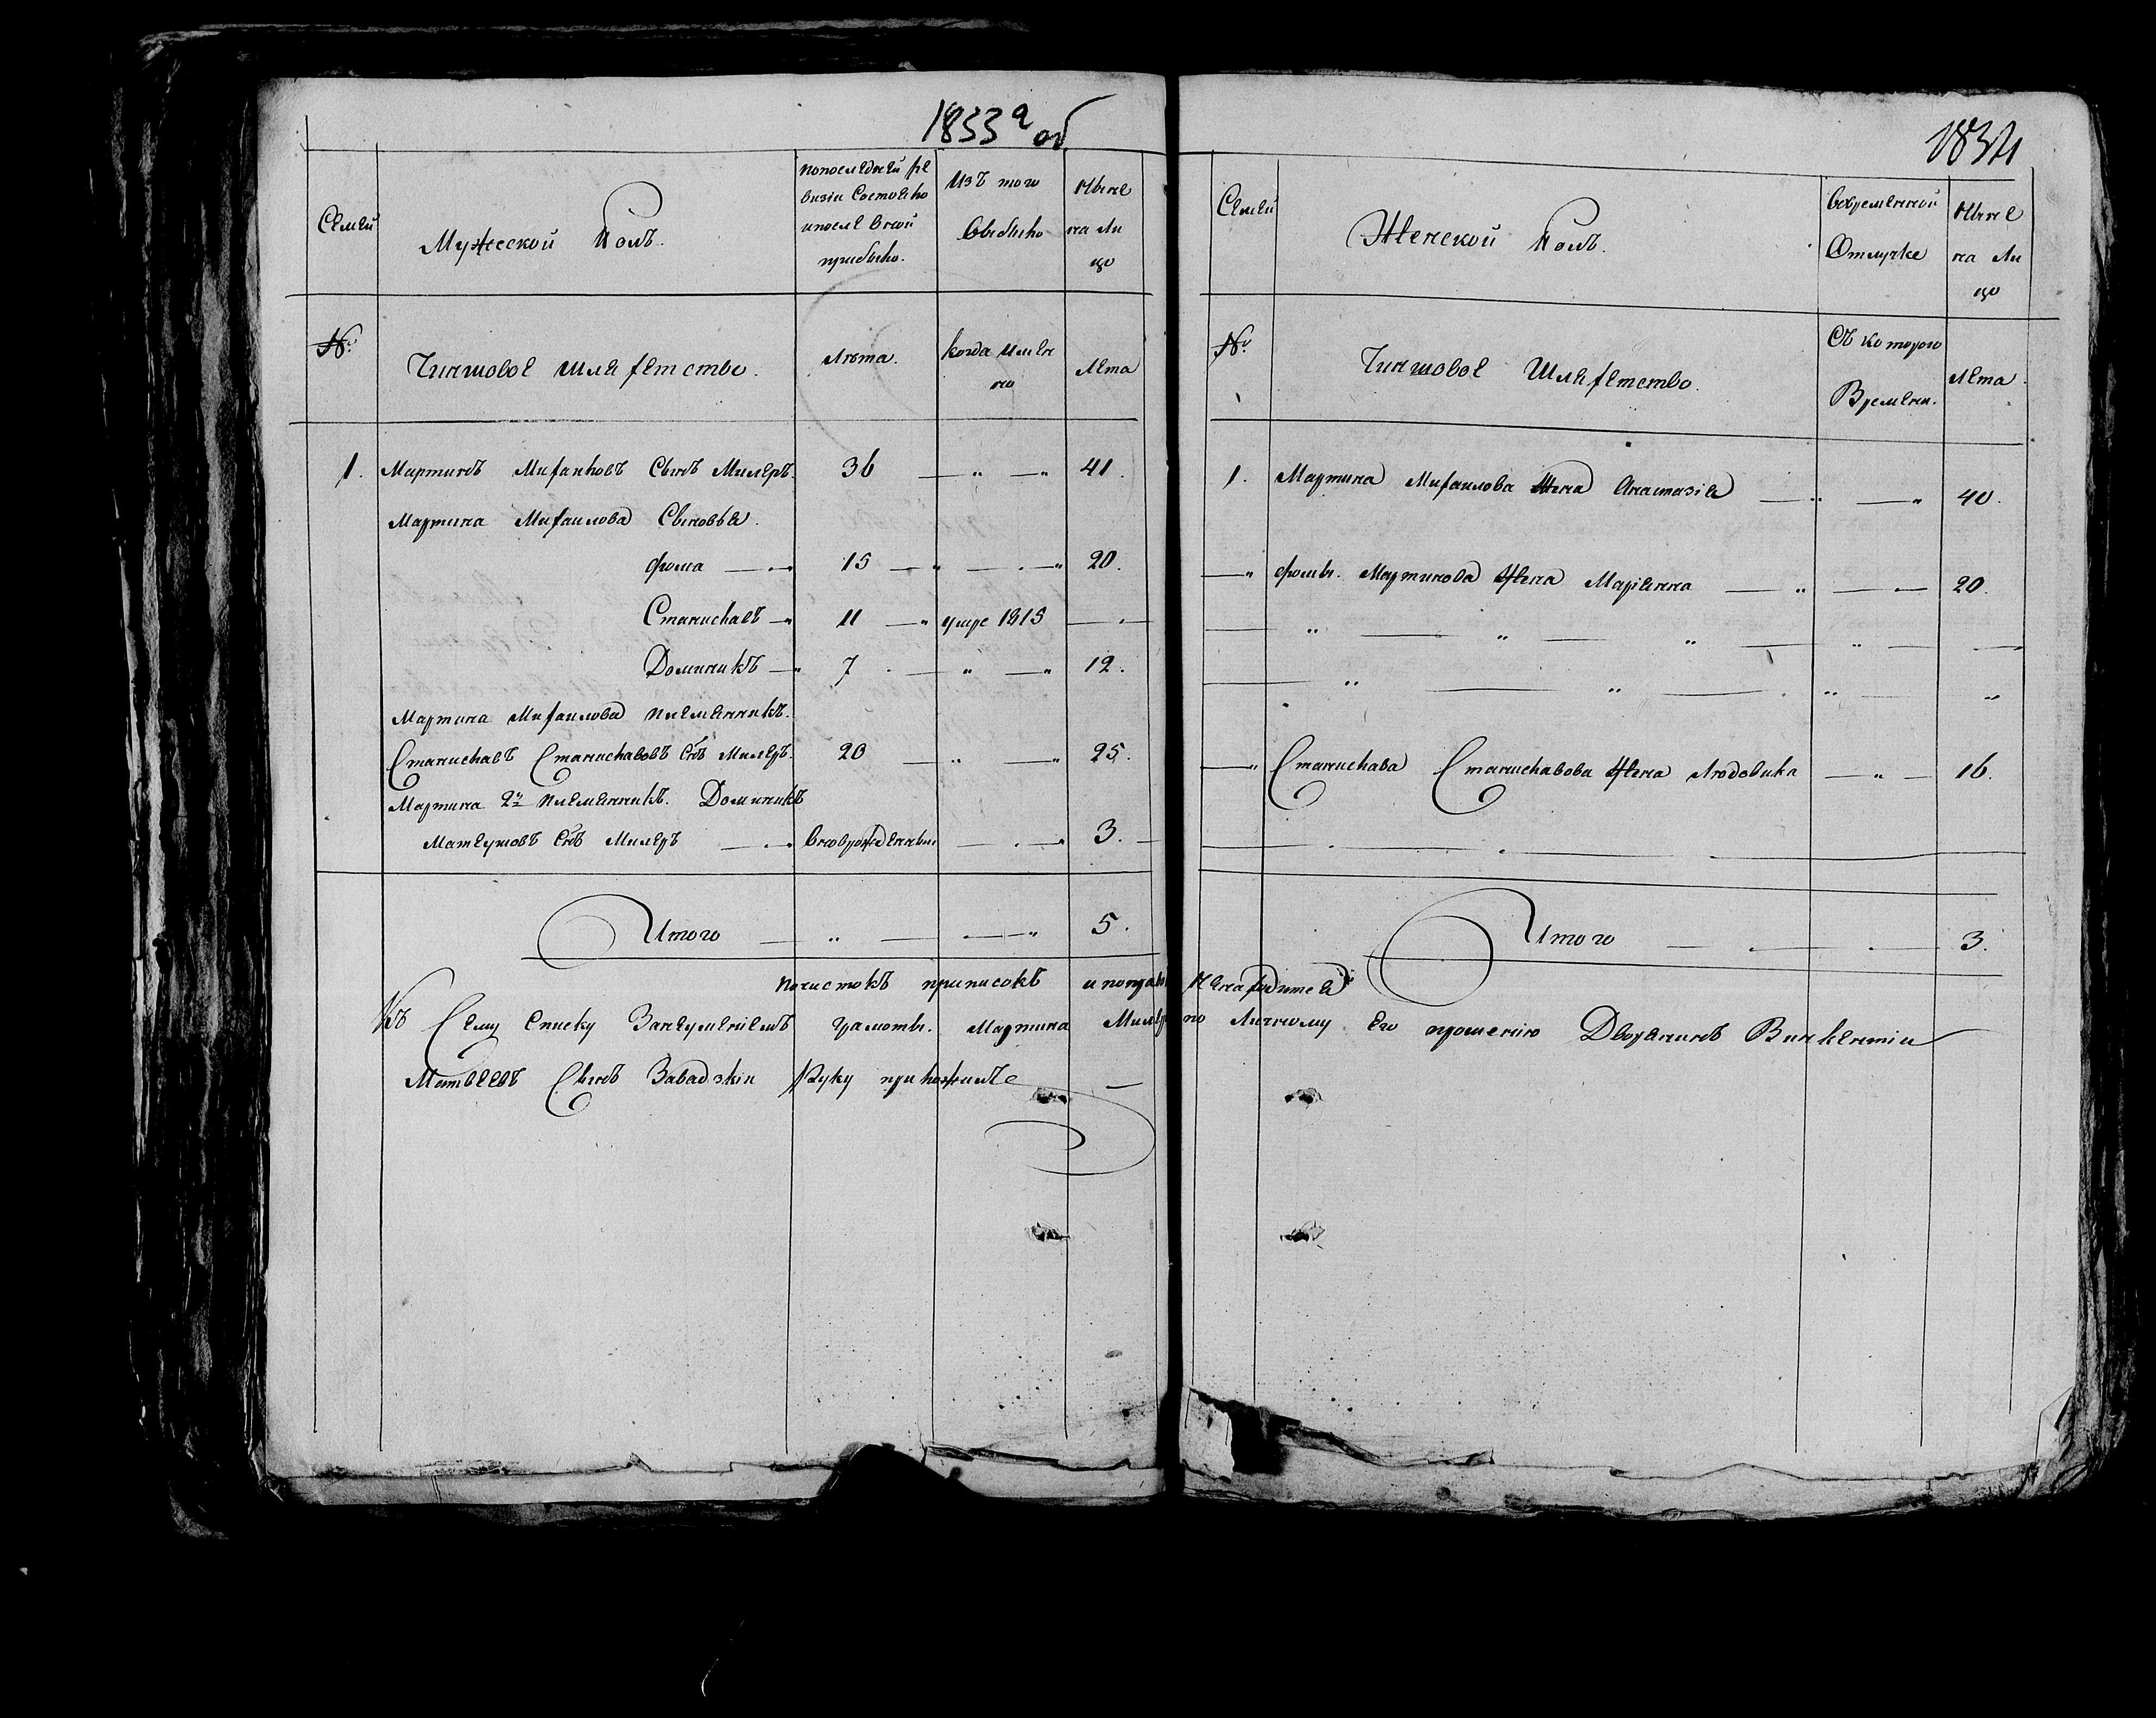 1833а об
Семьи
Мужеской Полъ.
Попоследней ре
визiи Состояло
ипосле Оной
прибыло.
Изъ того
Выбыло
Ныне
на Ли
цо
№
Чиншовое Шляхетство.
Лѣта.
Когда Имян
но
Лета
1. Мартинъ Михайловъ Сынъ Милеръ. 36 — „ —„ 41.
Мартина Михайлова Сыновья.
Фома 15 20.
Станиславъ 11 умре 1815
Доминикъ 7 12.
Мартина Михайлова племянникъ.
Станиславъ Станиславовъ Снъ Милеръ. 20 25.
Мартина 2й племянникъ. Доминикъ
Матеушовъ Снъ Милеръ Вновурожденный 3.
Итого 5.
1834
Семьи
Женской Полъ.
Вовременной
Отлучке
Ныне
на Ли
цо
№
Чиншовое Шляхетство.
Съ которого
Времени.
Лета.
1. Мартина Михайлова Жена Анастазiя 40.
Фомы. Мартинова Жена Марiянна 20.
Станислава Станиславова Жена Людовика 16.
Итого 3.
почистокъ приписокъ ипоправ ненаходится
Къ Сему Списку Занеумениемъ грамоты. Мартина Милер по Личному Его прошенiю Дворянинъ Винкентiи
Матвѣевъ Сынъ Завадзкiи Руку приложилъ